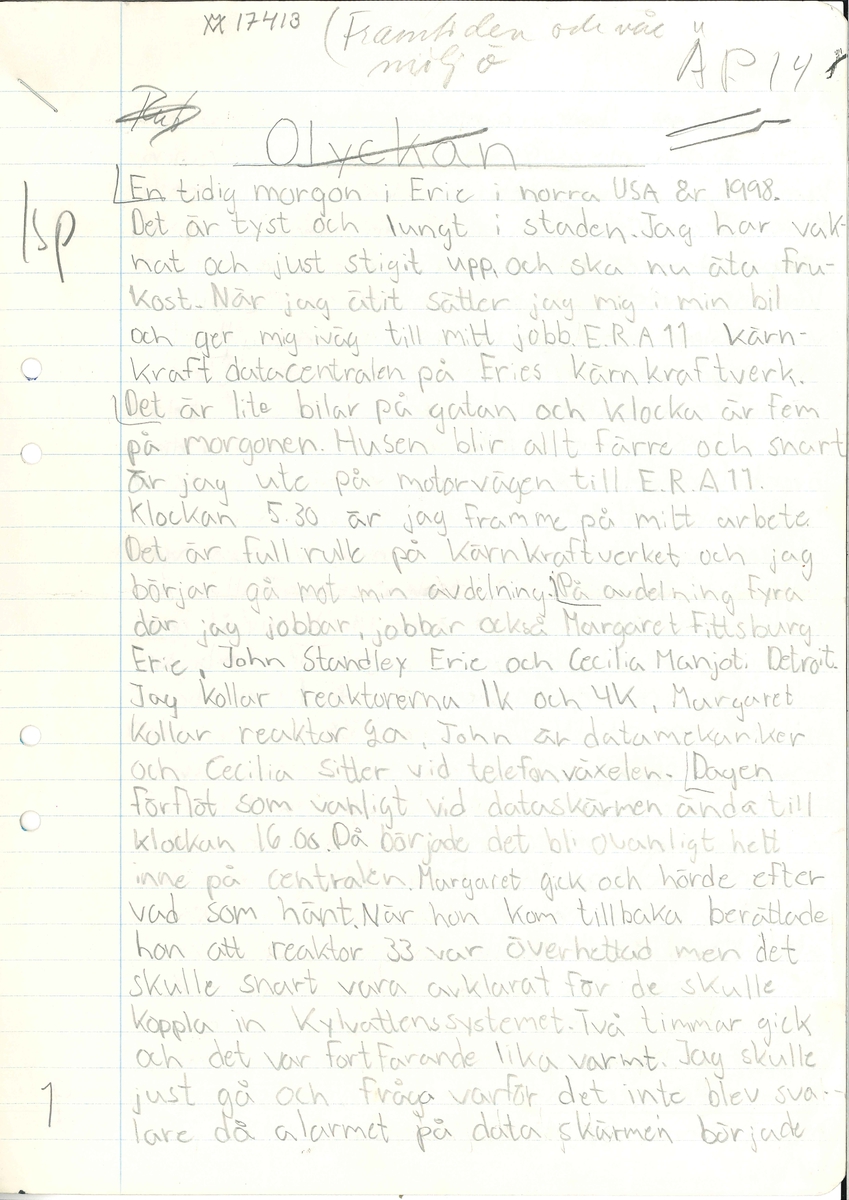 17413 (Framtiden och vår
miljö
ÄP 14
Olyckan
En tidig morgon i Erie i norra USA år 1998.
1sp
Det är tyst och lungt i staden. Jag har vak-
nat och just stigit upp, och ska nu äta fru-
kost. När jag ätit sätter jag mig i min bil
och ger mig iväg till mitt jobb. E.R.A 11 kärn-
kraft datacentralen på Eries kärnkraftverk.
Det är lite bilar på gatan och klocka är fem
på morgonen. Husen blir allt färre och snart
är jag ute på motorvägen till E.R.A 11.
Klockan 5.30 är jag framme på mitt arbete.
Det är full rulle på kärnkraftverket och jag
börjar gå mot min avdelning. På avdelning fyra
där jag jobbar, jobbar också Margaret Fittsburg
Erie, John Standley Erie och Cecilia Manjot. Detroit.
Jag kollar reaktorerna 1k och 4k, Margaret
kollar reaktor 9a, John är datamekaniker
och Cecilia sitter vid telefonväxelen. Dagen
förflöt som vanligt vid dataskärmen ända till
klockan 16.00. Då började det bli ovanligt hett
inne på centralen. Margaret gick och hörde efter
vad som hänt. När hon kom tillbaka berättade
hon att reaktor 33 var överhettad men det
skulle snart vara avklarat för de skulle
koppla in kylvattenssystemet. Två timmar gick
och det var fortfarande lika varmt. Jag skulle
just gå och fråga varför det inte blev sva-
lare då alarmet på data skärmen började
1